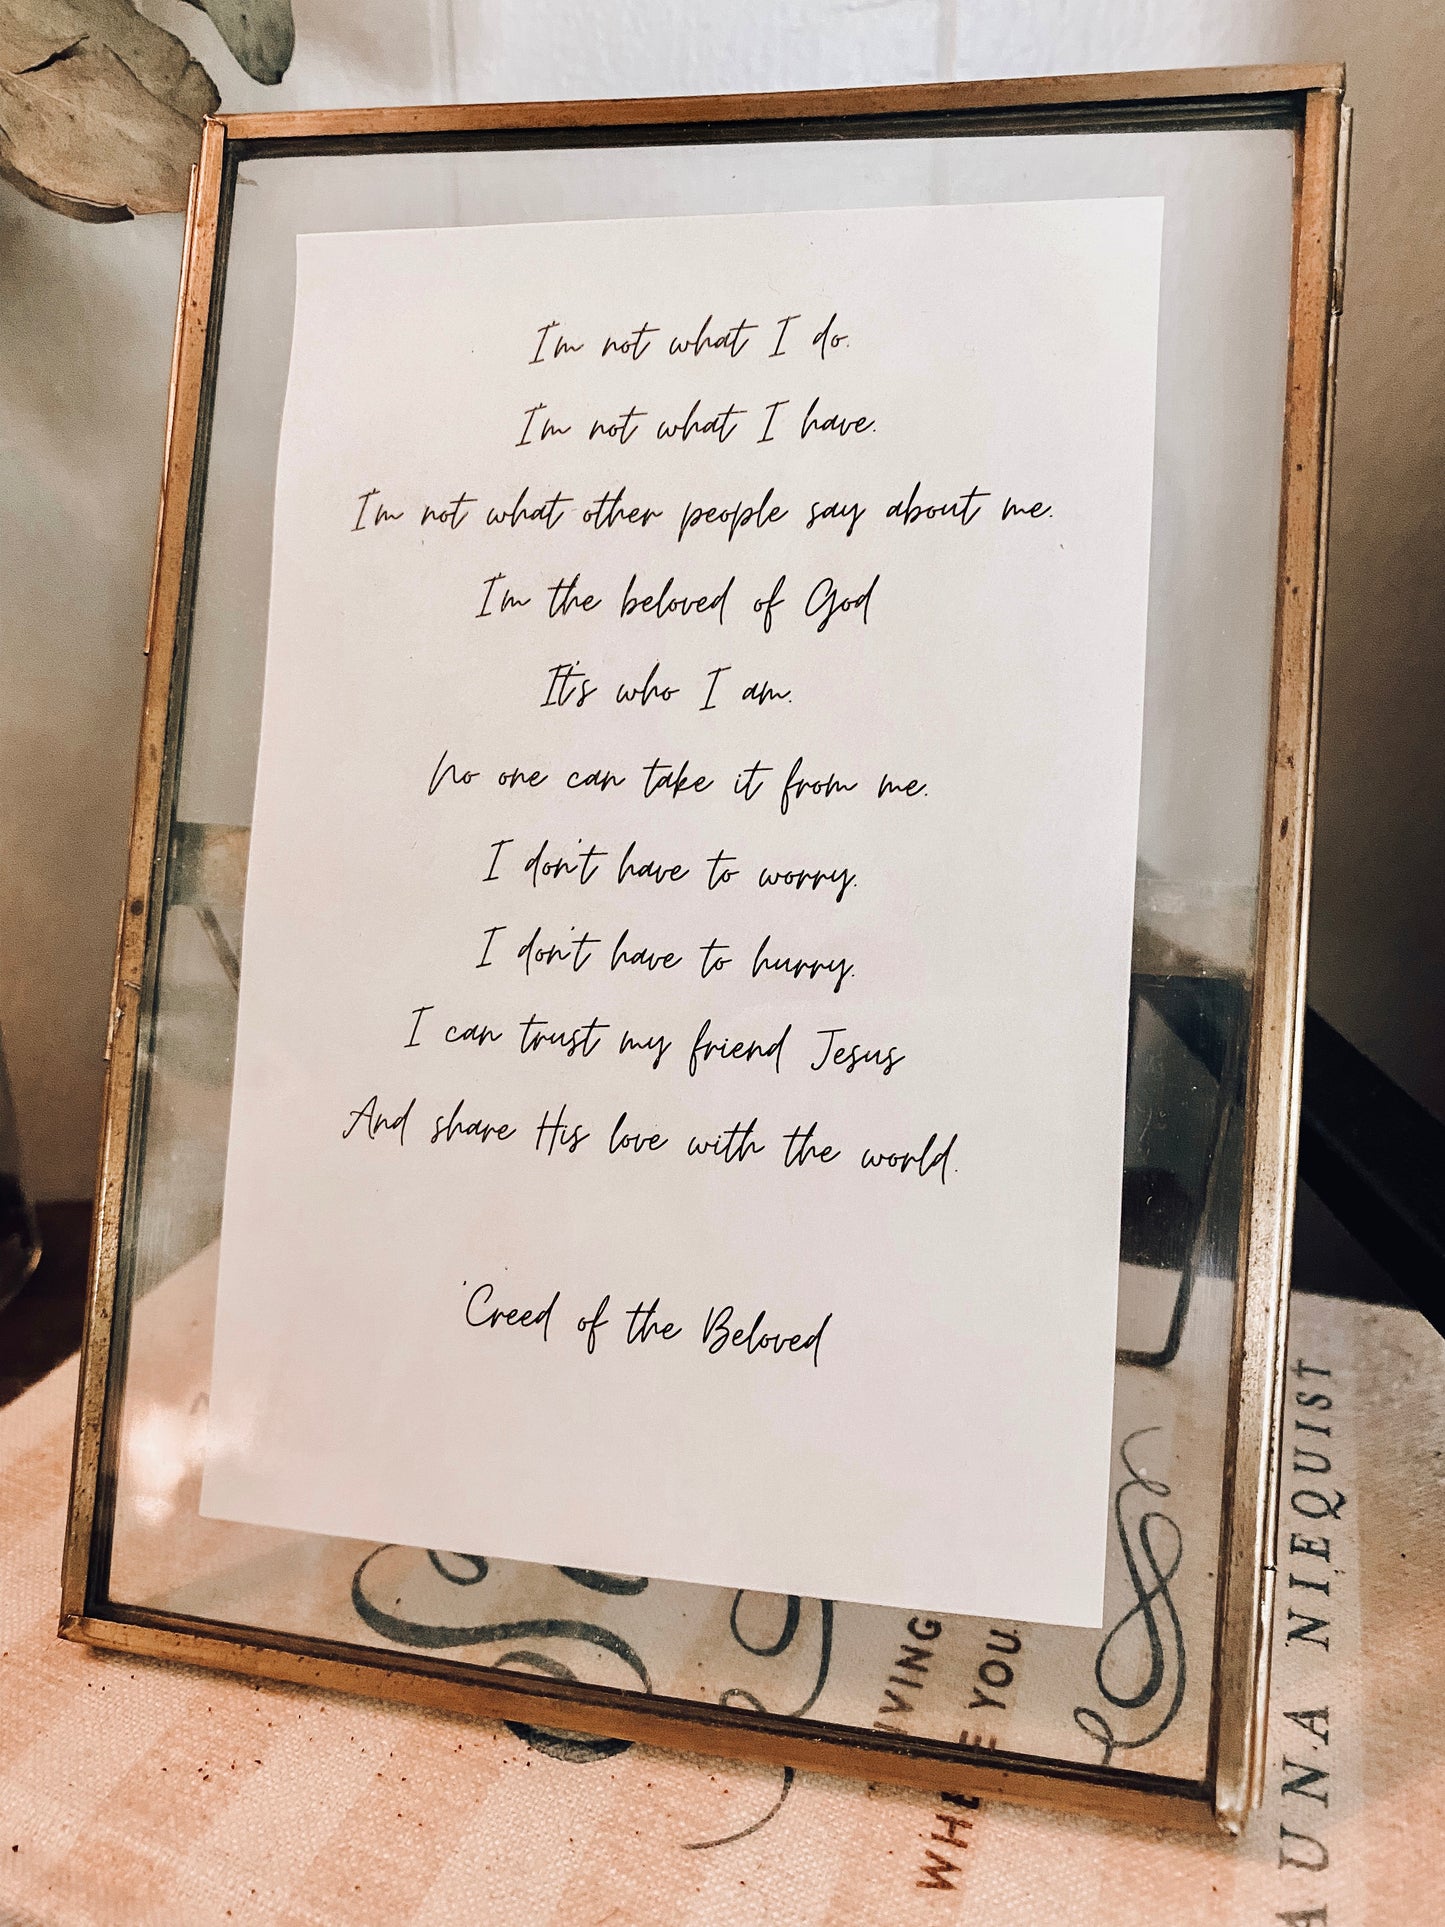 I'm not what I do.
I'm not what I have.
I'm not what other people say about me.
I'm the beloved of God
It's who I am.
No one can take it from me.
I don't have to worry.
I don't have to hurry.
I can trust my friend Jesus
And share His love with the world.
Creed of the Beloved
IVING
YOU
AUNA NIEQUIST